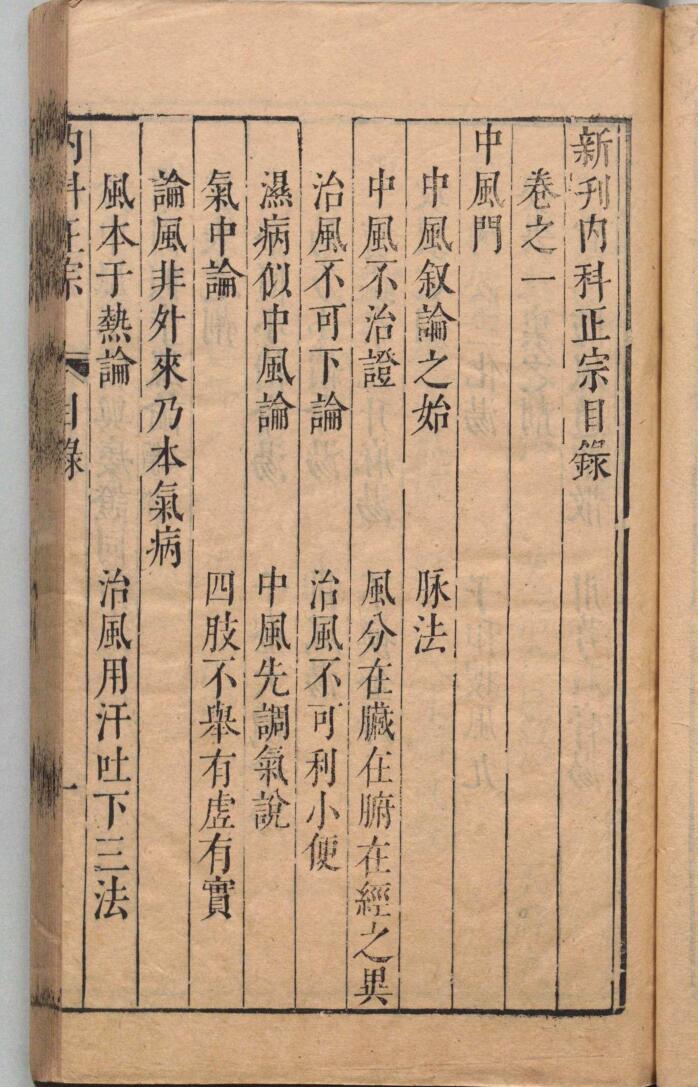 新刊内科正宗目錄
卷之一
中風門
中風叙論之始　脉法
中風不治證　風分在臟在腑在經之異
治風不可下論　治風不可利小便
濕病似中風論　中風先調氣說
氣中論　四肢不舉有虛有實
論風非外來乃本氣病
風本于熱論　治風用汗吐下三法
内科正宗　目錄　一